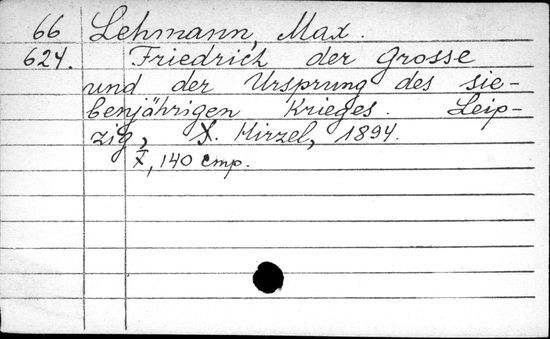 66 Lehmann, Max.
624. Friedrich der Grosse
und der Ursprung des sie-
benjährigen Krieges. Leip-
zig, S. Hirzel, 1894.
X, 140 стр.